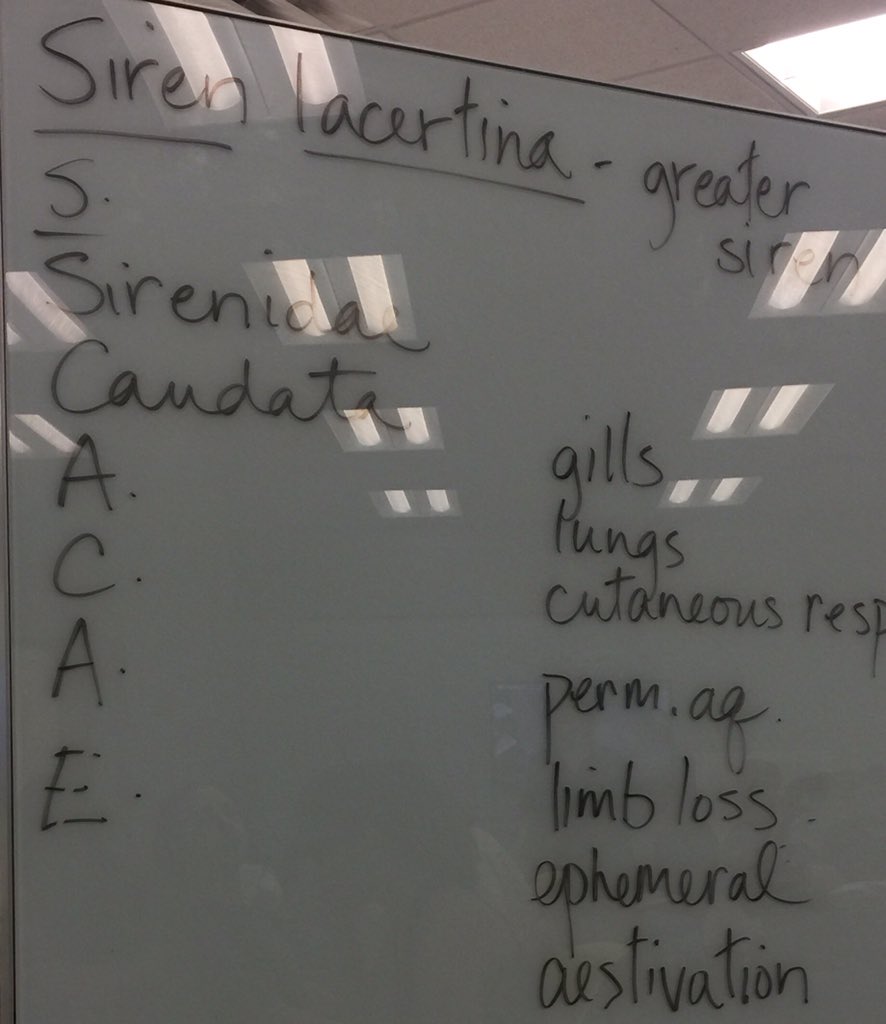 Siren lacertina - greater
siren
S.
Sirenidae
Caudata
A.
C.
A.
E.
gills
lungs
cutaneous resp
perm. aq.
limb loss.
ephemeral
aestivation